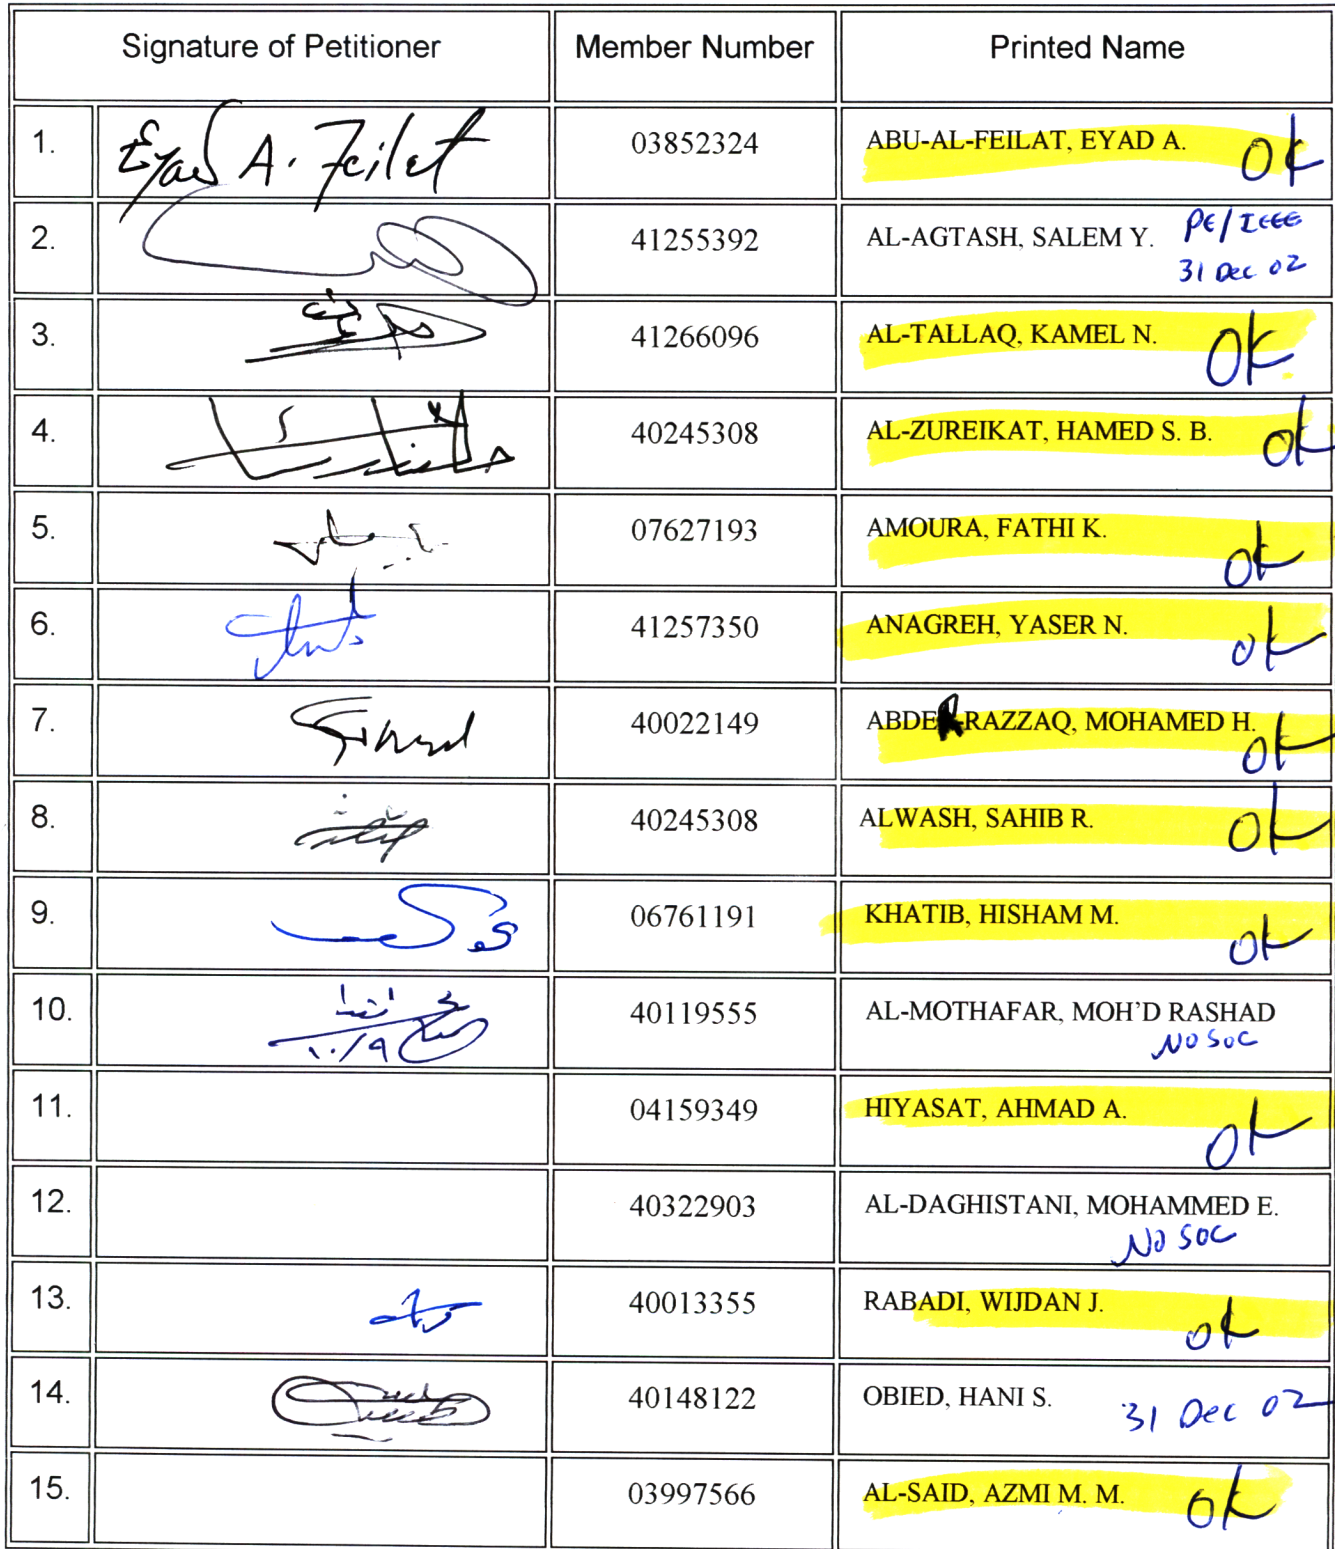 Signature of Petitioner Member Number Printed Name
1. Eyad A. Feilat 03852324 ABU-AL-FEILAT, EYAD A. OK
2. 41255392 AL-AGTASH, SALEM Y. PE/IEEE
31 Dec 02
3. 41266096 AL-TALLAQ, KAMEL N. OK
4. 40245308 AL-ZUREIKAT, HAMED S. B. OK
5. 07627193 AMOURA, FATHI K. OK
6. 41257350 ANAGREH, YASER N. OK
7. 40022149 ABDER-RAZZAQ, MOHAMED H. OK
8. 40245308 ALWASH, SAHIB R. OK
9. 06761191 KHATIB, HISHAM M. OK
10. ١٠/٩ 40119555 AL-MOTHAFAR, MOH'D RASHAD
NO SOC
11. 04159349 HIYASAT, AHMAD A. OK
12. 40322903 AL-DAGHISTANI, MOHAMMED E.
NO SOC
13. 40013355 RABADI, WIJDAN J. OK
14. 40148122 OBIED, HANI S. 31 Dec 02
15. 03997566 AL-SAID, AZMI M. M. OK